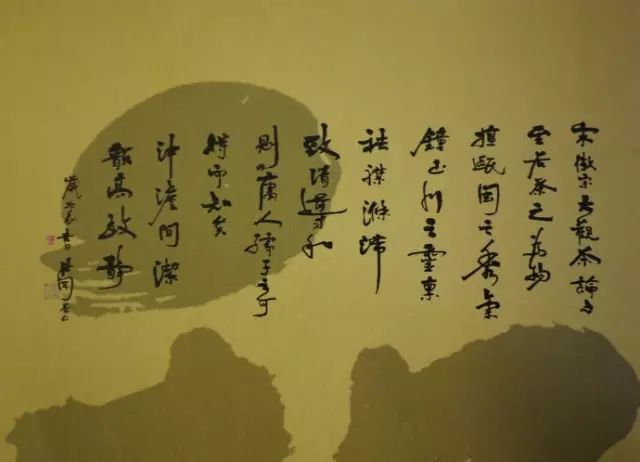 宋徽宗大觀茶論
至若茶之為物
擅甌閩之秀氣
鐘山川之靈稟
祛襟滌滯
致清導和
則非庸人孺子之可
得而知矣
沖澹間潔
韻高致靜
歲